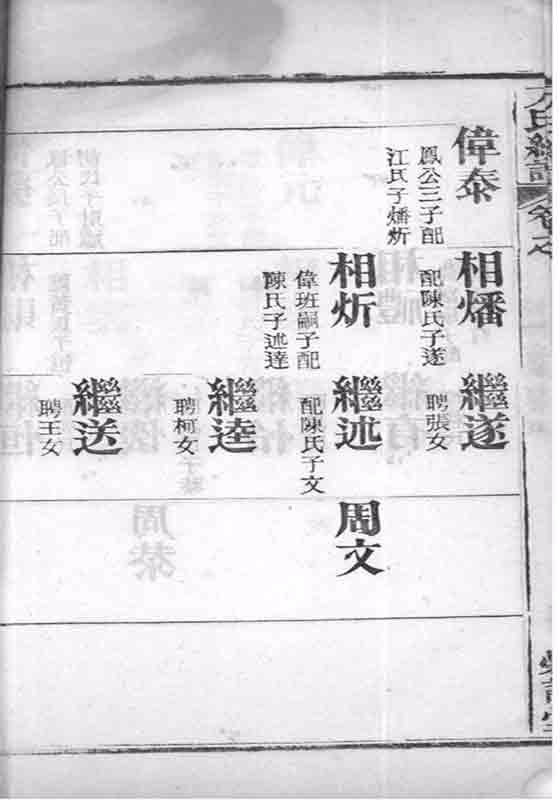 方氏
卷之
偉泰
鳳公三子配
江氏子燔炘
相燔
配陳氏子遂
相炘
偉班嗣子配
陳氏子述達
繼遂
聘張女
繼述
配陳氏子文
繼逵
聘柯女
繼送
聘王女
周文